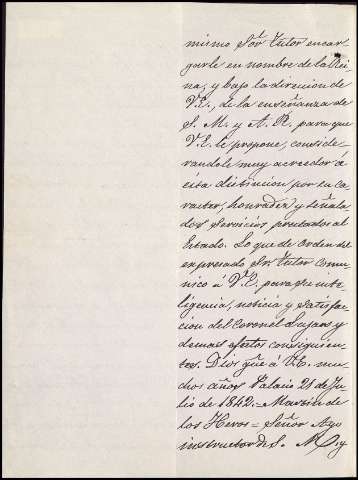 mismo Sor. Tutor encar-
garle en nombre de la Rei-
na, y bajo la direccion de
V.E., de la enseñanza de
S. M. y A. R. para que
V.E. le propone, conside-
randole muy acreedor a
esta distincion por su ca-
racter, honradez y señala-
dos servicios prestados al
Estado. Lo que de orden del
expresado Sr. Tutor comu-
nico á V.E. para su inte-
ligencia, noticia y satisfac-
cion del Coronel Lujan y
demas efectos consiguien-
tes. Dios gue á V.E. mu-
chos años. Palacio 21 de Ju-
lio de 1842.= Martin de
los Heros = Señor Ayo
instructor de S. M. y